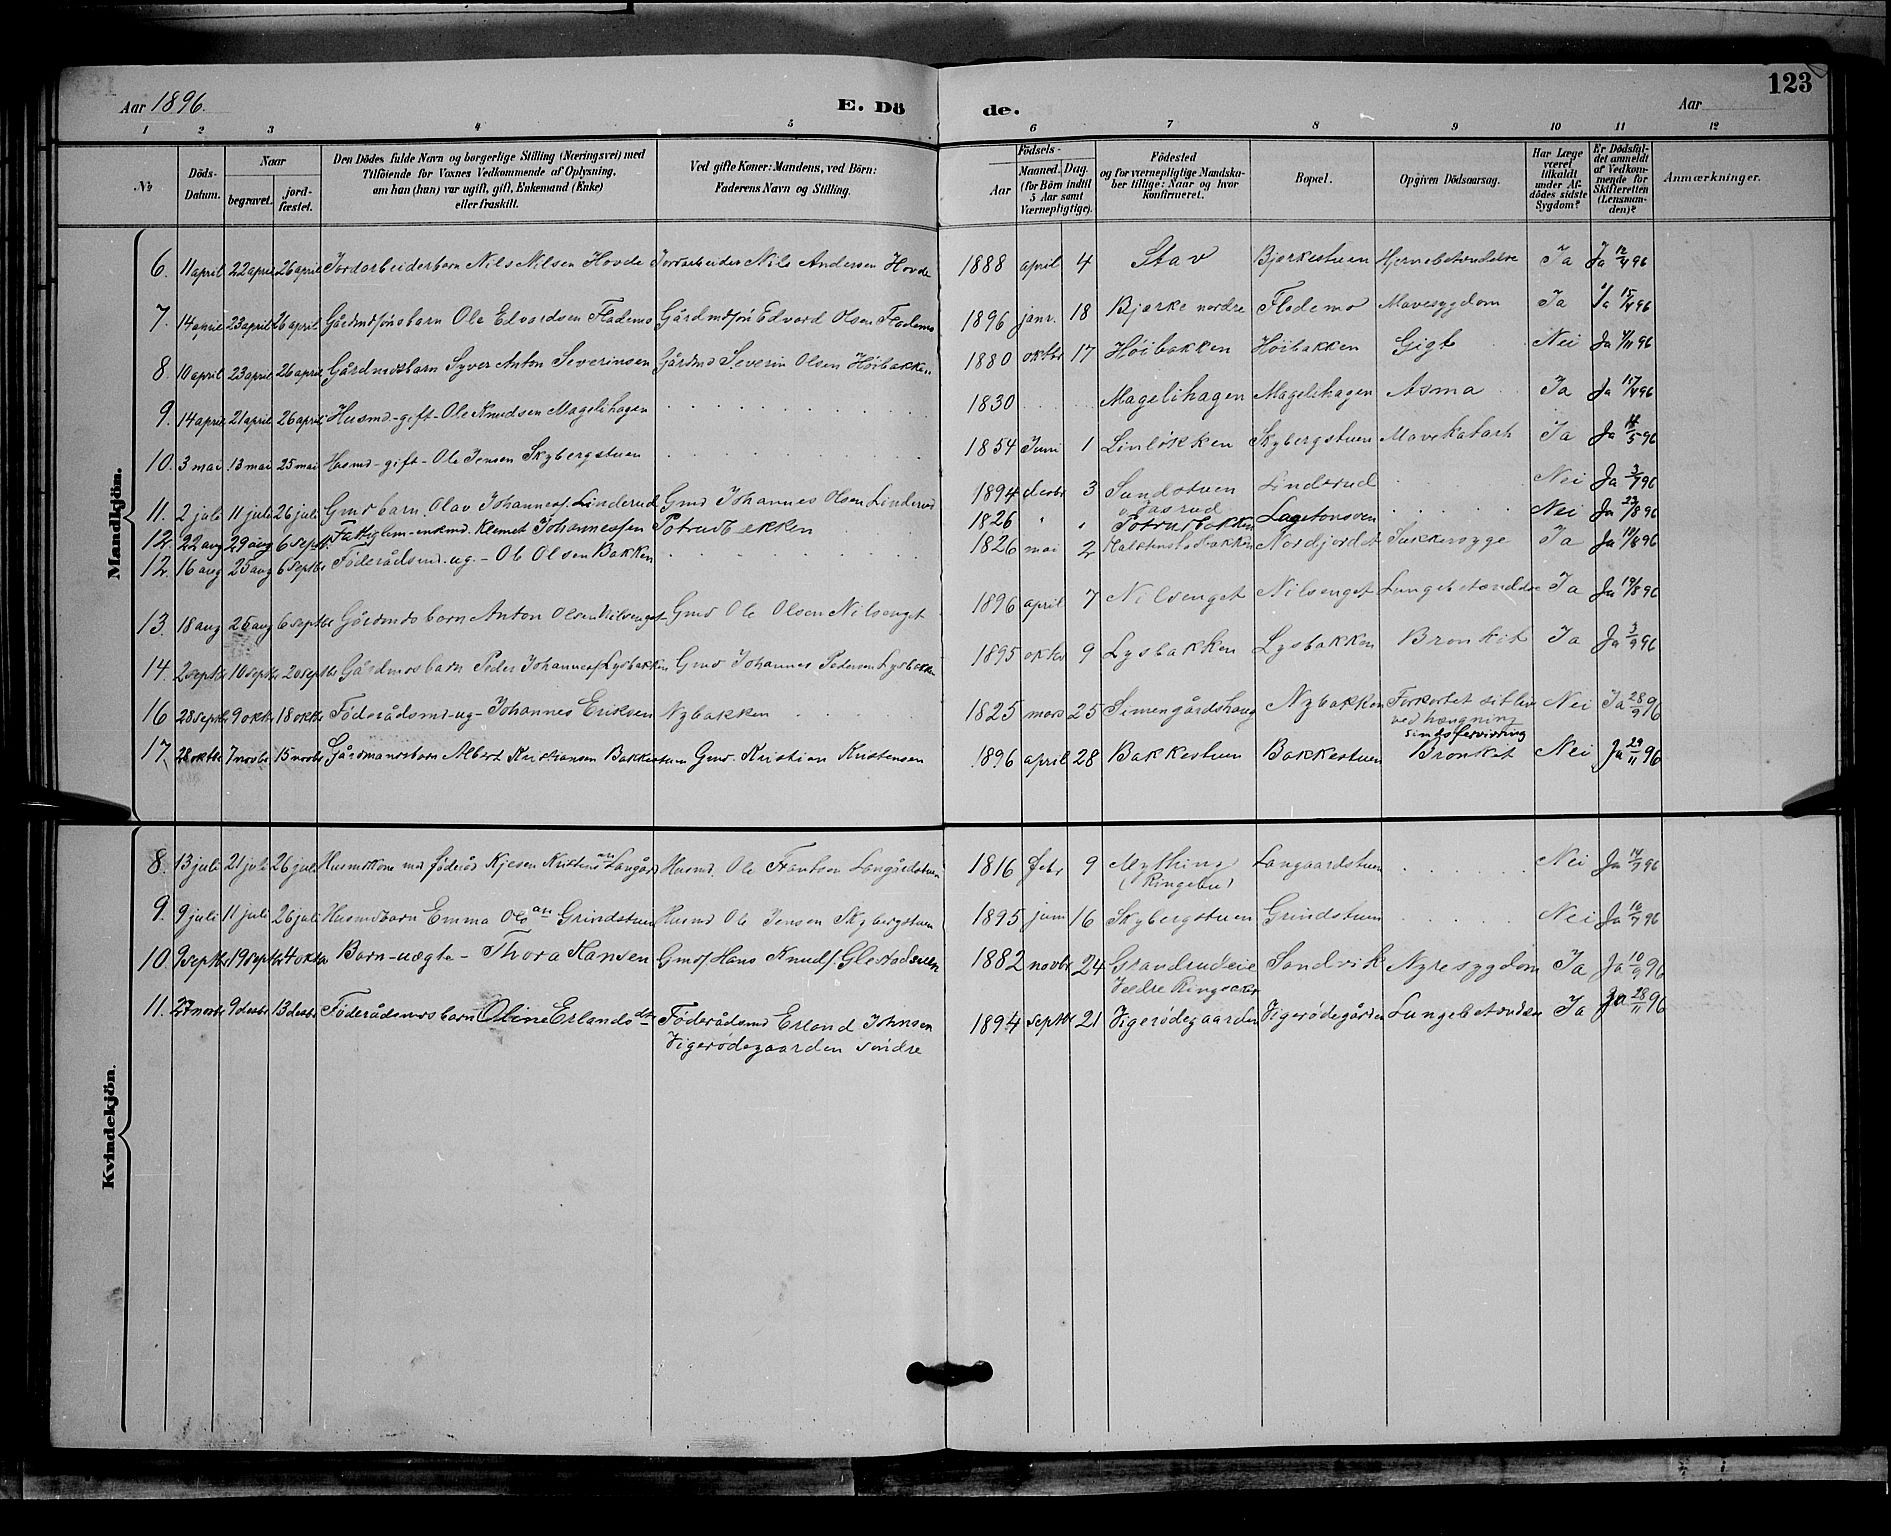 Aar 1896. E. Dö de. Aar 123
1 2 3 4 5 6 7 8 9 10 11 12
№ Döds-Datum. Naar begravet. jordfæstet. Den Dödes fulde Navn og borgerlige Stilling (Næringsvei) med Tilföiende for Voxnes Vedkommende af Oplysning, om han (hun) var ugift, gift, Enkemand (Enke) eller fraskilt. Ved gifte Koner: Mandens, ved Börn: Faderens Navn og Stilling. Födsels- Aar Maaned. Dag. (for Börn indtil 5 Aar samt Værnepligtige). Födested og for værnepligtige Mandskaber tillige: Naar og hvor konfirmeret. Bopæl. Opgiven Dödsaarsag. Har Læge været tilkaldt under Afdödes sidste Sygdom? Er Dödsfaldet anmeldt af Vedkommende for Skifteretten (Lensmanden)? Anmærkninger.
Mandkjön.
6. 11 april 22 april 26 april Jordarbeiderbarn Nils Nilsen Hovde Jordarbeider Nils Andersen Hovde 1888 april 4 Stav Bjørkestuen Hjernebetændelse Ja Ja 12/4 96
7. 14 april 23 april 26 april Gårdmdfønsbarn Ole Edvardsen Flademo Gårdmdføn Edvard Olsen Flademo 1896 janr. 18 Bjerke nordre Flademo Mavesygdom Ja Ja 15/4 96
8. 10 april 23 april 26 april Gårdmdsbarn Syver Anton Severinsen Gårdmd Severin Olsen Høibakken 1880 oktbr 17 Høibakken Høibakken Gigt Nei Ja 96
9. 14 april 21 april 26 april Husmd-gift-Ole Knudsen Magelihagen 1830 Magelihagen Magelihagen Asma Ja Ja 15/4 96
10. 3 mai 13 mai 25 mai Husmd-gift-Ole Jensen Skybergstuen 1854 Juni 1 Linløkken Skybergstuen Mavekatarh Ja Ja 5 96
11. 2 juli 11 juli 26 juli Gmdbarn. Olav Johannesf. Linderud Gmd Johannes Olsen Linderud 1894 desbr 3 Sundstuen Linderud Nei Ja 3/7 96
12. 22 aug 29 aug 6 septb. Fattiglem-enkmd. Klemet Johannessen Potrudbakken 1826 " " Potrudbakken Nei Ja 22/8 96
12. 16 aug 25 aug 6 septbr Føderådsmd.-ug.-Ole Olsen Bakken 1826 mai 2 Nordjordet Sukkersyge Ja Ja 96
13. 18 aug 26 aug 6 septbr Gårdmdsbarn Anton Olsen Nilsenget Gmd Ole Olsen Nilsenget 1896 april 7 Nilsenget Nilsenget Lungebetændelse Ja Ja 19/8 96
14. 2 septbr 10 septbr 20 septbr Gårdmdsbarn Peder Johannesf Lysbakken Gmd Johannes Pedersen Lysbakken 1895 oktbr 9 Lysbakken Lysbakken Bronkit Ja Ja 3/9 96
16 28 septbr 9 oktbr 18 oktbr Føderådsmd-ug-Johannes Eriksen Nybakken 1825 mars 25 Simengårdshaug Nybakken Forkortet sit liv Nei Ja 28/9 96
ved hængning
sindsforvirring
17. 28 oktbr 7 novbr 15 novbr Gårdmandsbarn Albert Kristiansen Bakkestuen Gmd. Kristian Kristensen 1896 april 28 Bakkestuen Bakkestuen Bronkit Nei Ja 29/11 96
Kvindekjön.
8. 13 juli 21 juli 26 juli Husmdskone med føderåd Kjesen Husmd. Ole Frantsen Langårdstuen 1816 febr 9 Mything Langaardstuen Nei Ja 14/7 96
(Ringebu)
9. 9 juli 11 juli 26 juli Husmdbarn Emma Ols an Grindstuen Husmd Ole Jensen Skybergstuen 1895 juni 16 Skybergstuen Grindstuen Nei Ja 10/7 96
10. 9 septbr 19 septbr 4 oktbr Barn-uægte-Thora Hansen Gmdsf Hans Knudf. Glestadsveen 1882 novbr 24 Grandrudeie Sandvik Nyresygdom Ja Ja 10/9 96
Veldre Ringsaker
11. 27 novbr 9 desbr 13 desbr Føderådsmdsbarn Oline Erlandsdtr Føderådsmd Erland Johnsen 1894 septbr 21 Vigerødegaarden Vigerødegården Lungebetændelse Ja Ja 28/11 96
Vigerødegaarden søndre